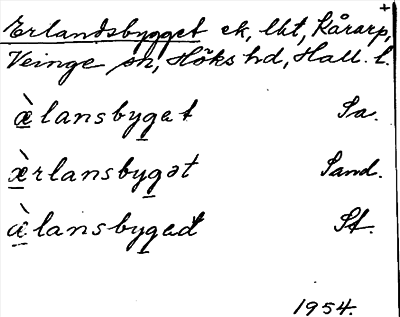 +
Erlandsbygget ek, lht, Kårarp,
Veinge sn, Höks hd, Hall. l.
æ̀lansbyget Sa.
æ̀rlansbygət Sand.
æ̀lansbygəd St.
1954.